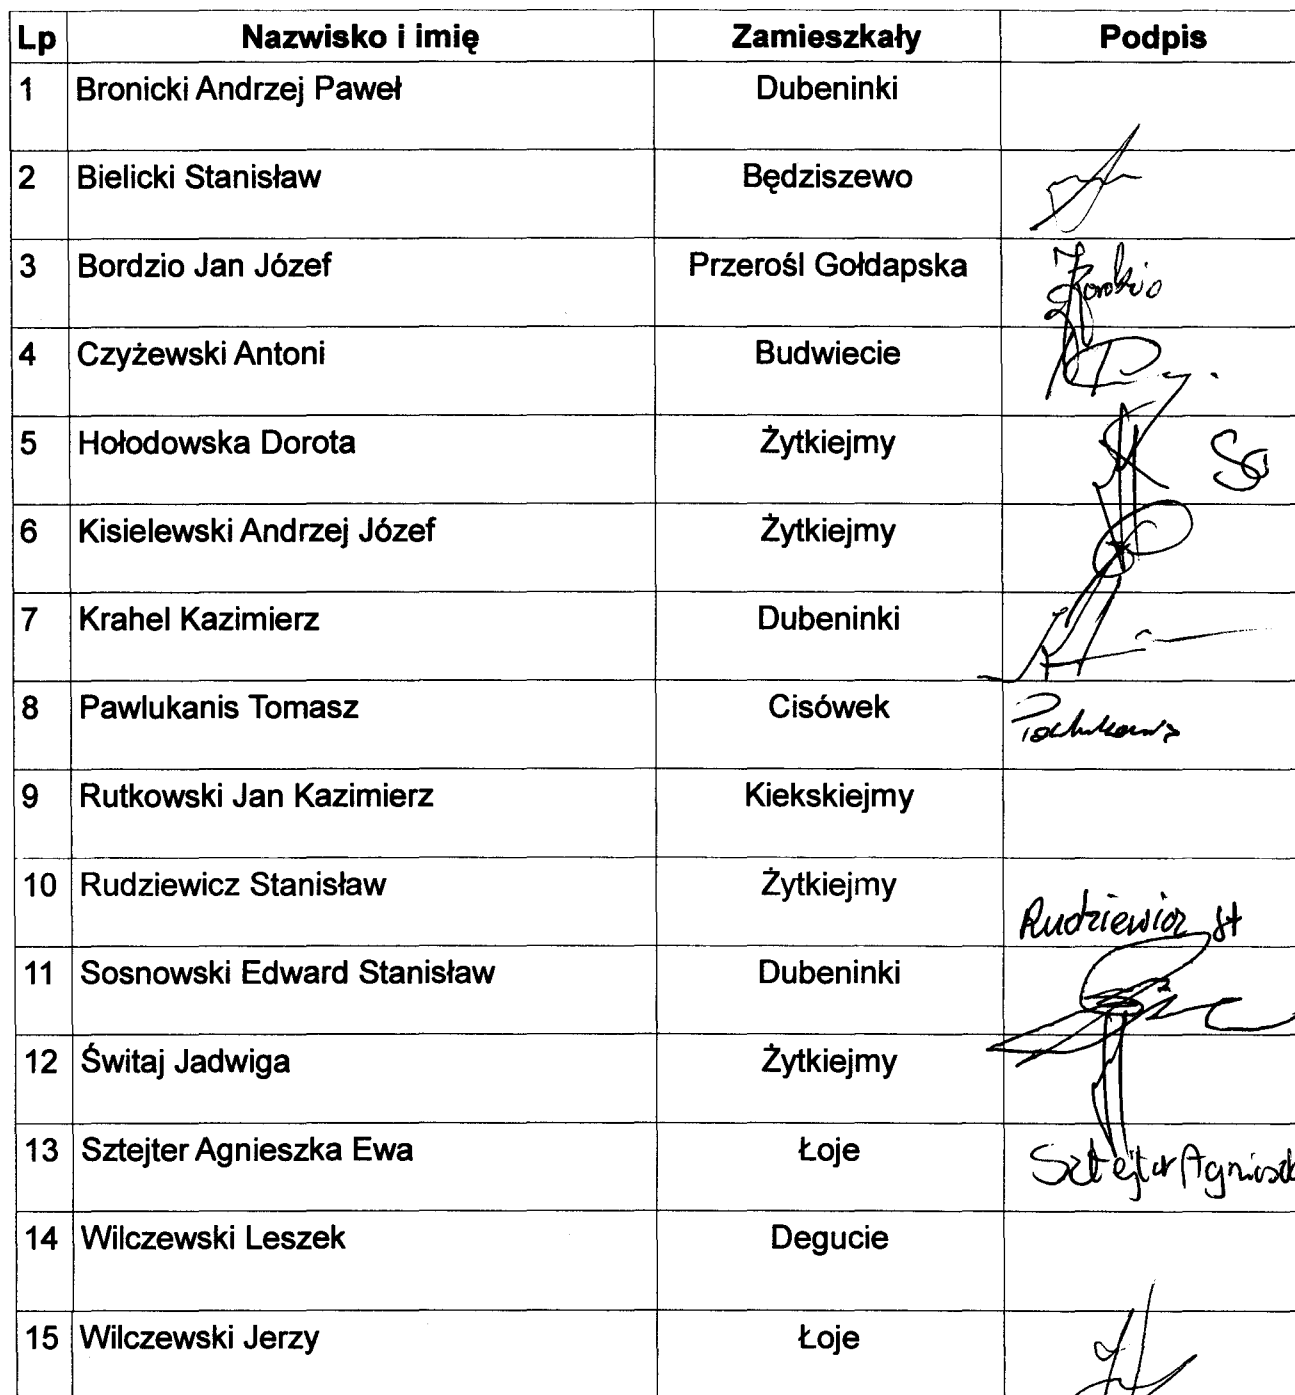 Lp Nazwisko i imię Zamieszkały Podpis
1 Bronicki Andrzej Paweł Dubeninki
2 Bielicki Stanisław Będziszewo
3 Bordzio Jan Józef Przerośl Gołdapska
4 Czyżewski Antoni Budwiecie
5 Hołodowska Dorota Żytkiejmy
6 Kisielewski Andrzej Józef Żytkiejmy
7 Krahel Kazimierz Dubeninki
8 Pawlukanis Tomasz Cisówek
9 Rutkowski Jan Kazimierz Kiekskiejmy
10 Rudziewicz Stanisław Żytkiejmy Rudziewicz St
11 Sosnowski Edward Stanisław Dubeninki
12 Świtaj Jadwiga Żytkiejmy
13 Sztejter Agnieszka Ewa Łoje Sztejter Agnieszk
14 Wilczewski Leszek Degucie
15 Wilczewski Jerzy Łoje